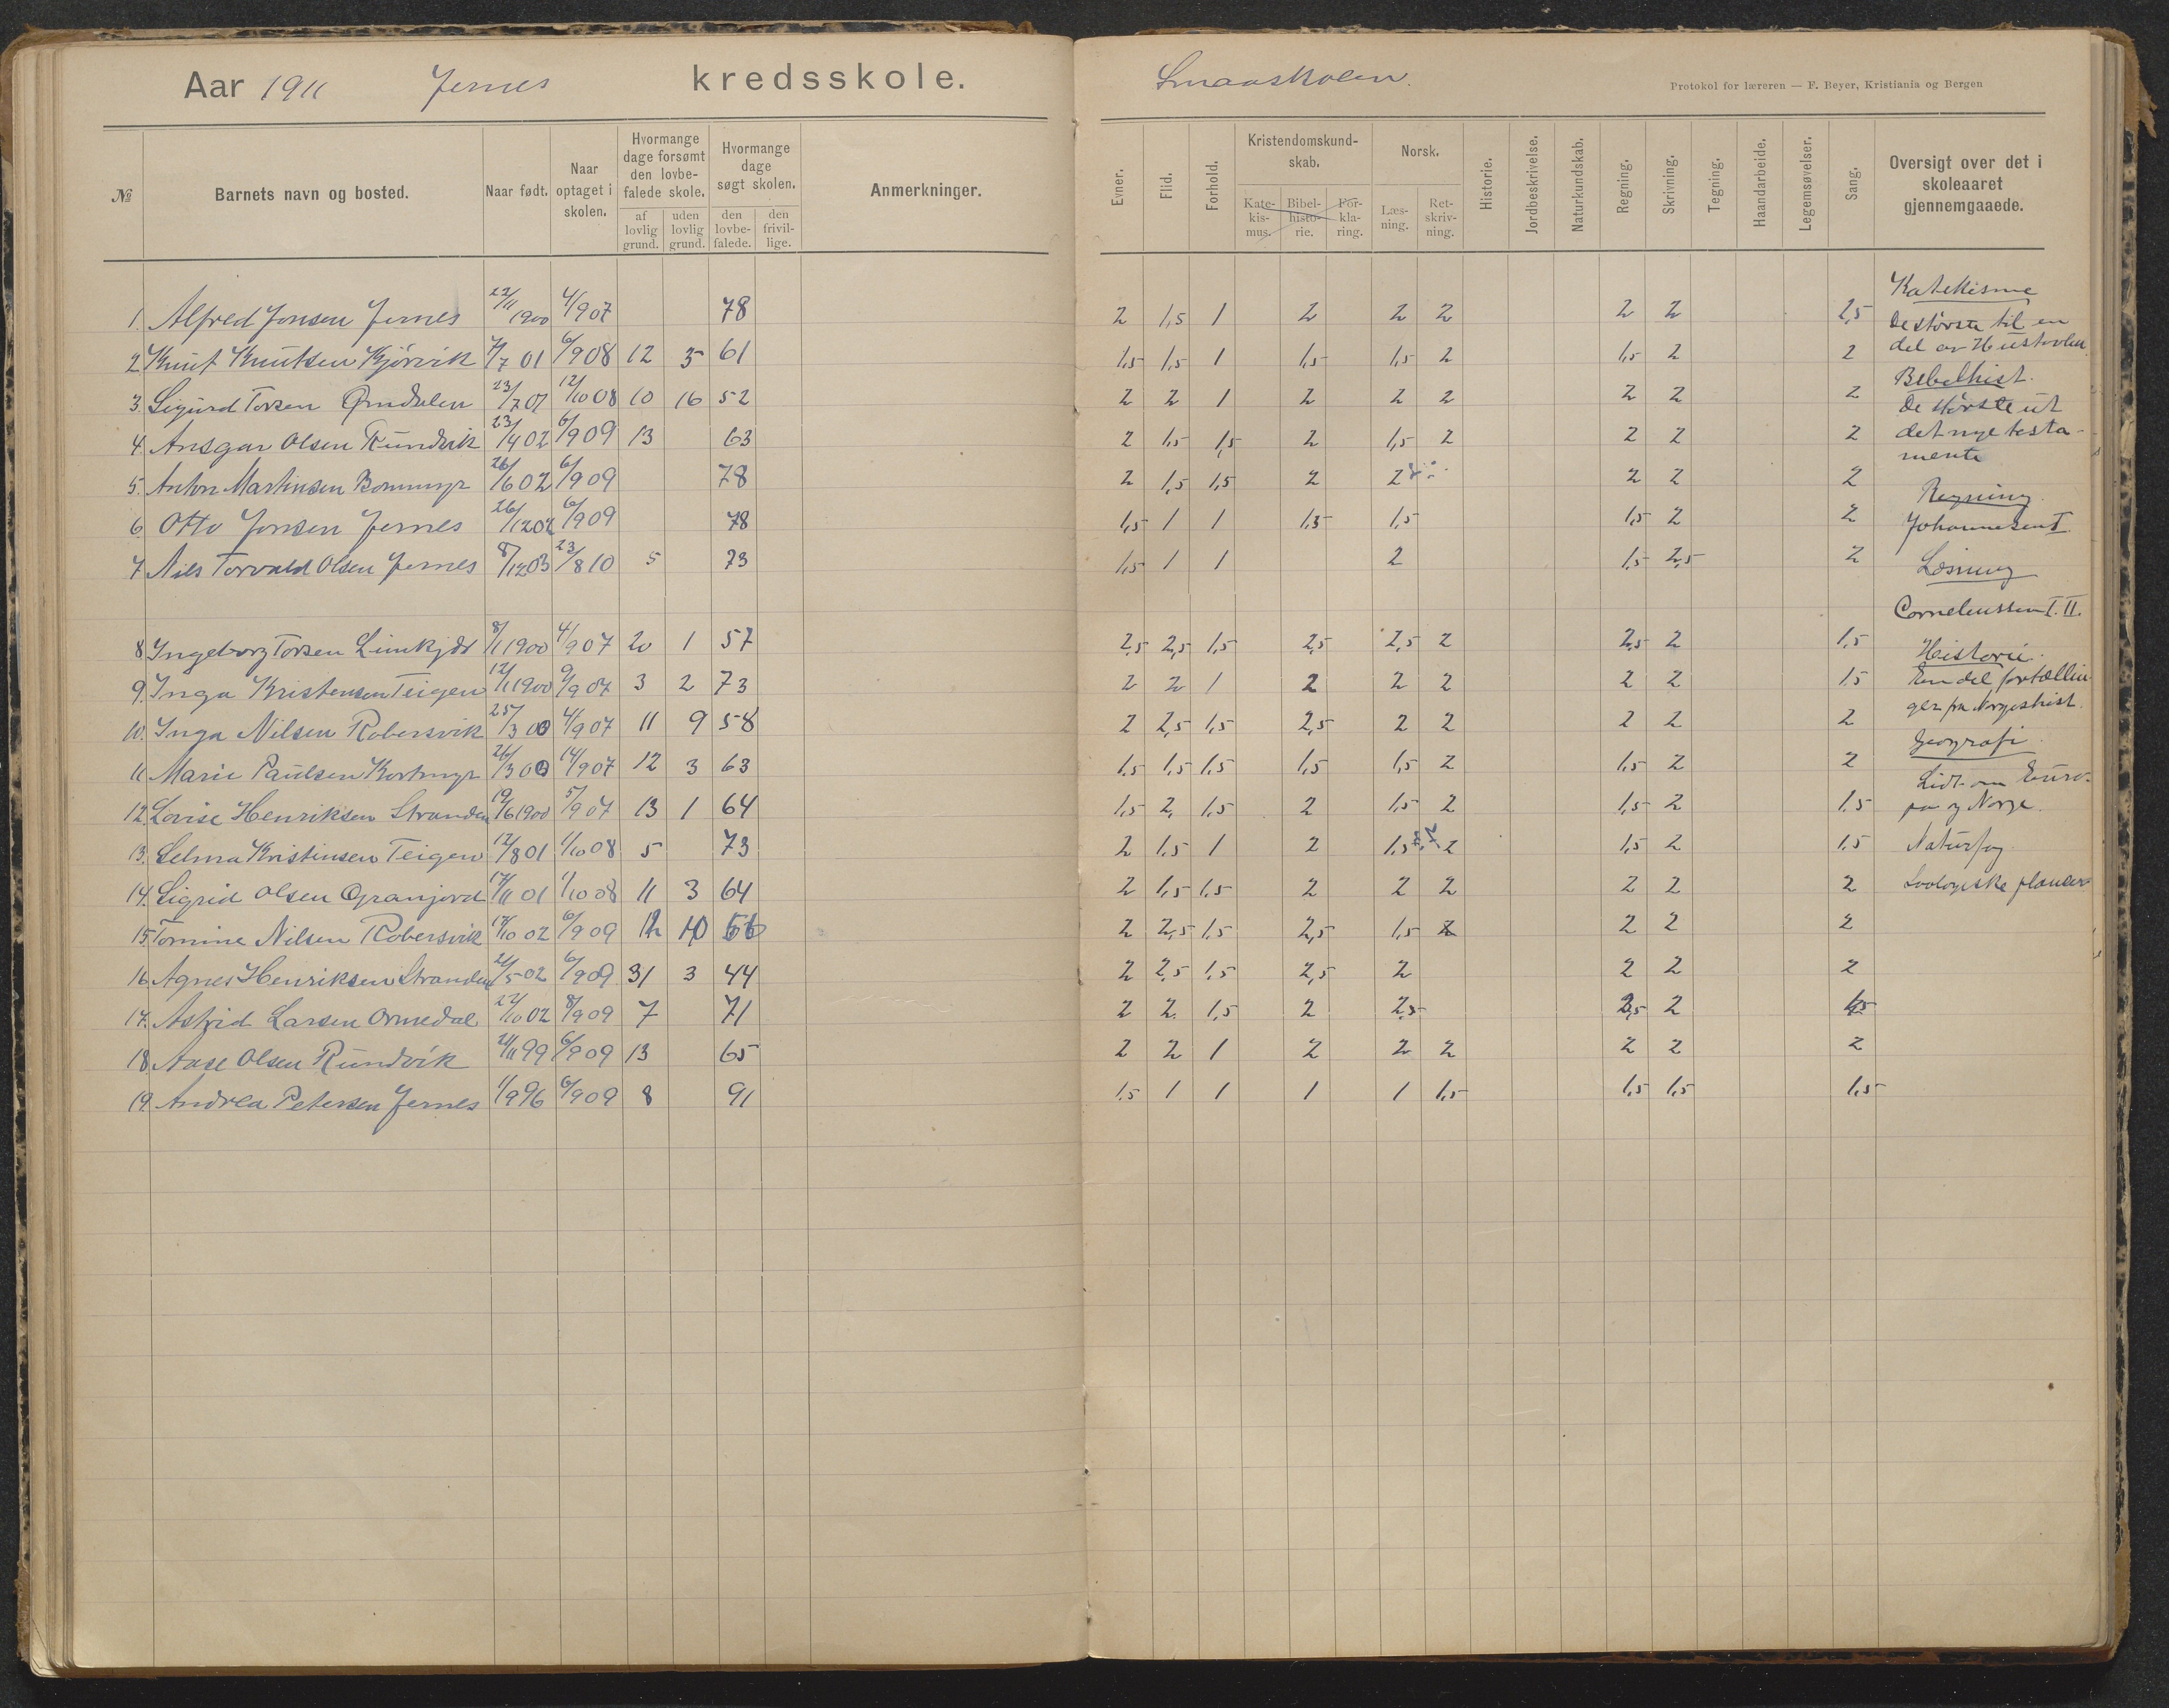 Aar 1911 Jernes kredsskole. Smaaskolen.
Protokol for læreren — F. Beyer, Kristiania og Bergen
№ Barnets navn og bosted. Naar født. Naar optaget i skolen. Hvormange dage forsømt den lovbefalede skole. af lovlig grund. uden lovlig grund. Hvormange dage søgt skolen. den lovbefalede. den frivillige. Anmerkninger.
Evner. Flid. Forhold. Kristendomskundskab. Katekismus. Bibelhistorie. Forklaring. Norsk. Læsning. Retskrivning. Historie. Jordbeskrivelse. Naturkundskab. Regning. Skrivning. Tegning. Haandarbeide. Legemsøvelser. Sang. Oversigt over det i skoleaaret gjennemgaaede.
1. Alfred Jonsen Jernes 22/11 1900 4/9 07 78 2 1,5 1 2 2 2 2 2 2,5
2 Knut Knutsen Kjørvik 7/7 01 6/9 08 12 5 61 1,5 1,5 1 1,5 1,5 2 1,5 2 2
3. Sigurd Torsen 23/7 01 12/10 08 10 16 52 2 2 1 2 2 2 2 2 2
4. Ansgar Olsen Rundvik 23/4 02 6/9 09 13 63 2 1,5 1,5 2 1,5 2 2 2 2
5. Anton Martinsen 26/6 02 6/9 09 78 2 1,5 1,5 2 2 2 2 2
6 Otto Jonsen Jernes 26/12 02 6/9 09 78 1,5 1 1 1,5 1,5 1,5 2 2
7 Nils Torvald Olsen Jernes 8/12 03 23/8 10 5 73 1,5 1 1 2 1,5 2,5 2
8 Ingeborg Torsen 8/1 1900 4/9 07 20 1 57 2,5 2,5 1,5 2,5 2,5 2 2,5 2 1,5
9. Inga Kristensen Teigen 12/1 1900 9/9 07 3 2 73 2 2 1 2 2 2 2 2 1,5
10. Inga Nilsen Robersvik 25/3 00 4/9 07 11 9 58 2 2,5 1,5 2,5 2 2 2 2 2
11 Marie Paulsen 26/3 00 14/9 07 12 3 63 1,5 1,5 1,5 1,5 1,5 2 1,5 2 2
12. Lovise Henriksen Stranden 19/6 1900 5/9 07 13 1 64 1,5 2 1,5 2 1,5 2 1,5 2 1,5
13. Selma Kristinsen Teigen 12/8 01 1/10 08 5 73 2 1,5 1 2 1,5 2 1,5 2 1,5
14. Sigrid Olsen Granjord 17/11 01 1/10 08 11 3 64 2 1,5 1,5 2 2 2 2 2 2
15 Tomine Nilsen Robersvik 17/10 02 6/9 09 12 10 56 2 2,5 1,5 2,5 1,5 2 2 2 2
16. Agnes Henriksen Stranden 21/5 02 6/9 09 31 3 44 2 2,5 1,5 2,5 2 2 2 2
17. Astrid Larsen Ormedal 22/10 02 8/9 09 7 71 2 2 1,5 2 2,5 2,5 2 1,5
18 Aase Olsen Rundvik 21/11 99 6/9 09 13 65 2 2 1 2 2 2 2 2 2
19. Andrea Petersen Jernes 1/9 96 6/9 09 8 91 1,5 1 1 1 1 1,5 1,5 1,5 1,5
Katekisme
De største til en
del av Hustavlen.
Bibelhist.
De største ut
det nye testa-
mente
Regning
Johannesen I
Læsning
Corneliussen I. II.
Historie.
En del fortællin
ger fra Norgeshist.
Geografi
Lidt om Euro-
pa og Norge.
Naturfag
Zoologiske plancer